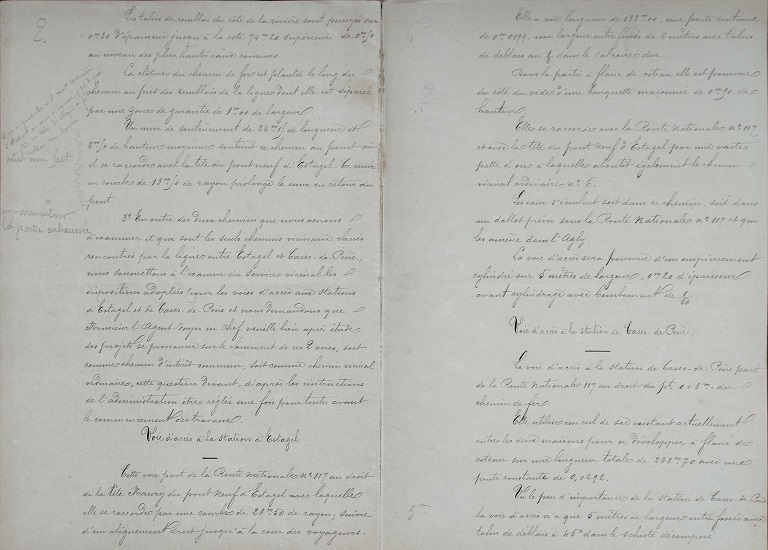 2.
Les talus de remblai du côté de la rivière sont perreyés sur
0m30 d'épaisseur jusqu'à la cote 74m20 supérieure de 0m50
au niveau des plus hautes eaux connues.
La clôture du chemin de fer est plantée le long du
chemin au pied des remblais de la ligne dont elle est séparée
par une zone de garantie de 1m00 de largeur.
Un mur de soutènement de de longueur et
de hauteur moyenne soutient ce chemin au point où
il se raccorde avec la tête du pont neuf d'Estagel. Ce mur
en courbe de de rayon prolonge le mur en retour du
pont.
mur non fait
empierrement sur
la partie exhaussée
3° En outre des deux chemins que nous venons
d'examiner et que sont les seuls chemins vicinaux classés
rencontrés par la ligne entre Estagel et Cases-de-Pène,
nous soumettons à l'examen du Service vicinal les
dispositions adoptées pour les voies d'accès aux stations
d'Estagel et de Cases-de-Pène et nous demandons que
Monsieur l'Agent-Voyer en Chef veuille bien après étude
des projets se prononcer sur le classement de ces 2 voies, soit
comme chemin d'intérêt commun, soit comme chemin vicinal
ordinaire, cette question devant, d'après les instructions
de l'administration être réglée une fois pour toutes avant
le commencement des travaux.
Voie d'accès à la station d'Estagel
Cette voie part de la Route Nationale N° 117 au droit
de la tête Maury du pont neuf d'Estagel avec laquelle
elle se raccorde par une courbe de 28m50 de rayon, suivie
d'un alignement droit jusqu'à la cour des voyageurs.
Elle a une longueur de 138m00, une pente continue
de 0m0199, une largeur entre fossés de 6 mètres avec talus
de déblais au dans le calcaire dur.
Dans la partie à flanc de coteau elle est pourvue
du côté du vide d'une banquette maçonnée de 0m90 de
hauteur.
Elle se raccorde avec la Route Nationale N° 117
et avec la tête du pont neuf d'Estagel par une vaste
patte d'oie à laquelle aboutit également le chemin
vicinal ordinaire n° 6.
Les eaux s'écoulent soit dans ce chemin, soit dans
un dallot prévu sous la Route Nationale n° 117 et qui
les amène dans l'Agly.
La voie d'accès sera pourvue d'un empierrement
cylindré sur 5 mètres de largeur, 0m20 d'épaisseur
avant cylindrage avec bombement de 1/50
Voie d'accès à la station de Cases-de-Pène.
La voie d'accès à la station de Cases-de-Pène part
de la Route Nationale 117 au droit du pt. du
chemin de fer.
Elle utilise un cul de sac existant actuellement
entre les deux maisons pour se développer à flanc de
coteau sur une longueur totale de 238m70 avec une
pente constante de 0,0292.
Vu le peu d'importance de la station de Cases-de-Pène
la voie d'accès n'a que 5 mètres de largeur entre fossés avec
talus de déblais à 45° dans le schiste décomposé.
5